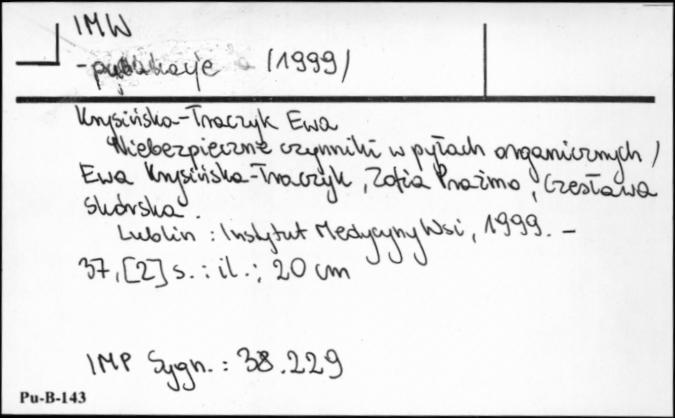 IMW
-publikacje (1999)
Krysińska-Traczyk Ewa
Niebezpieczne czynniki w pyłach organicznych /
Ewa Krysińska-Traczyk, Zofia Prażmo, Czesława
Skórska.
Lublin : Instytut Medycyny Wsi, 1999. –
37, [2] s. : il. ; 20 cm
IMP Sygn. : 38.229
Pu-B-143